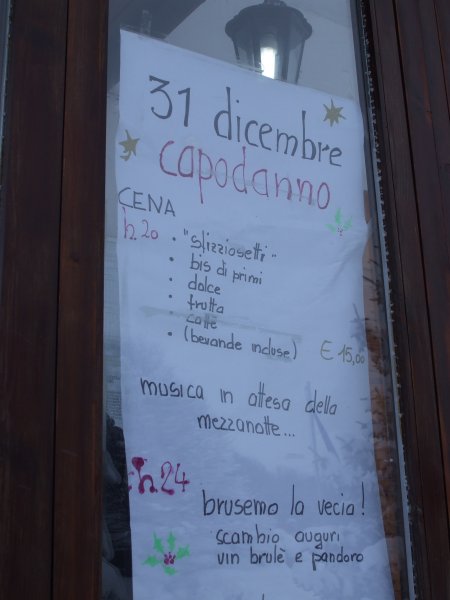 31 dicembre
capodanno
CENA
h. 20 • "sfizziosetti"
• bis di primi
• dolce
• frutta
• caffè
• (bevande incluse) € 15,00
musica in attesa della
mezzanotte...
h 24
brusemo la vecia!
scambio auguri
vin brulè e pandoro